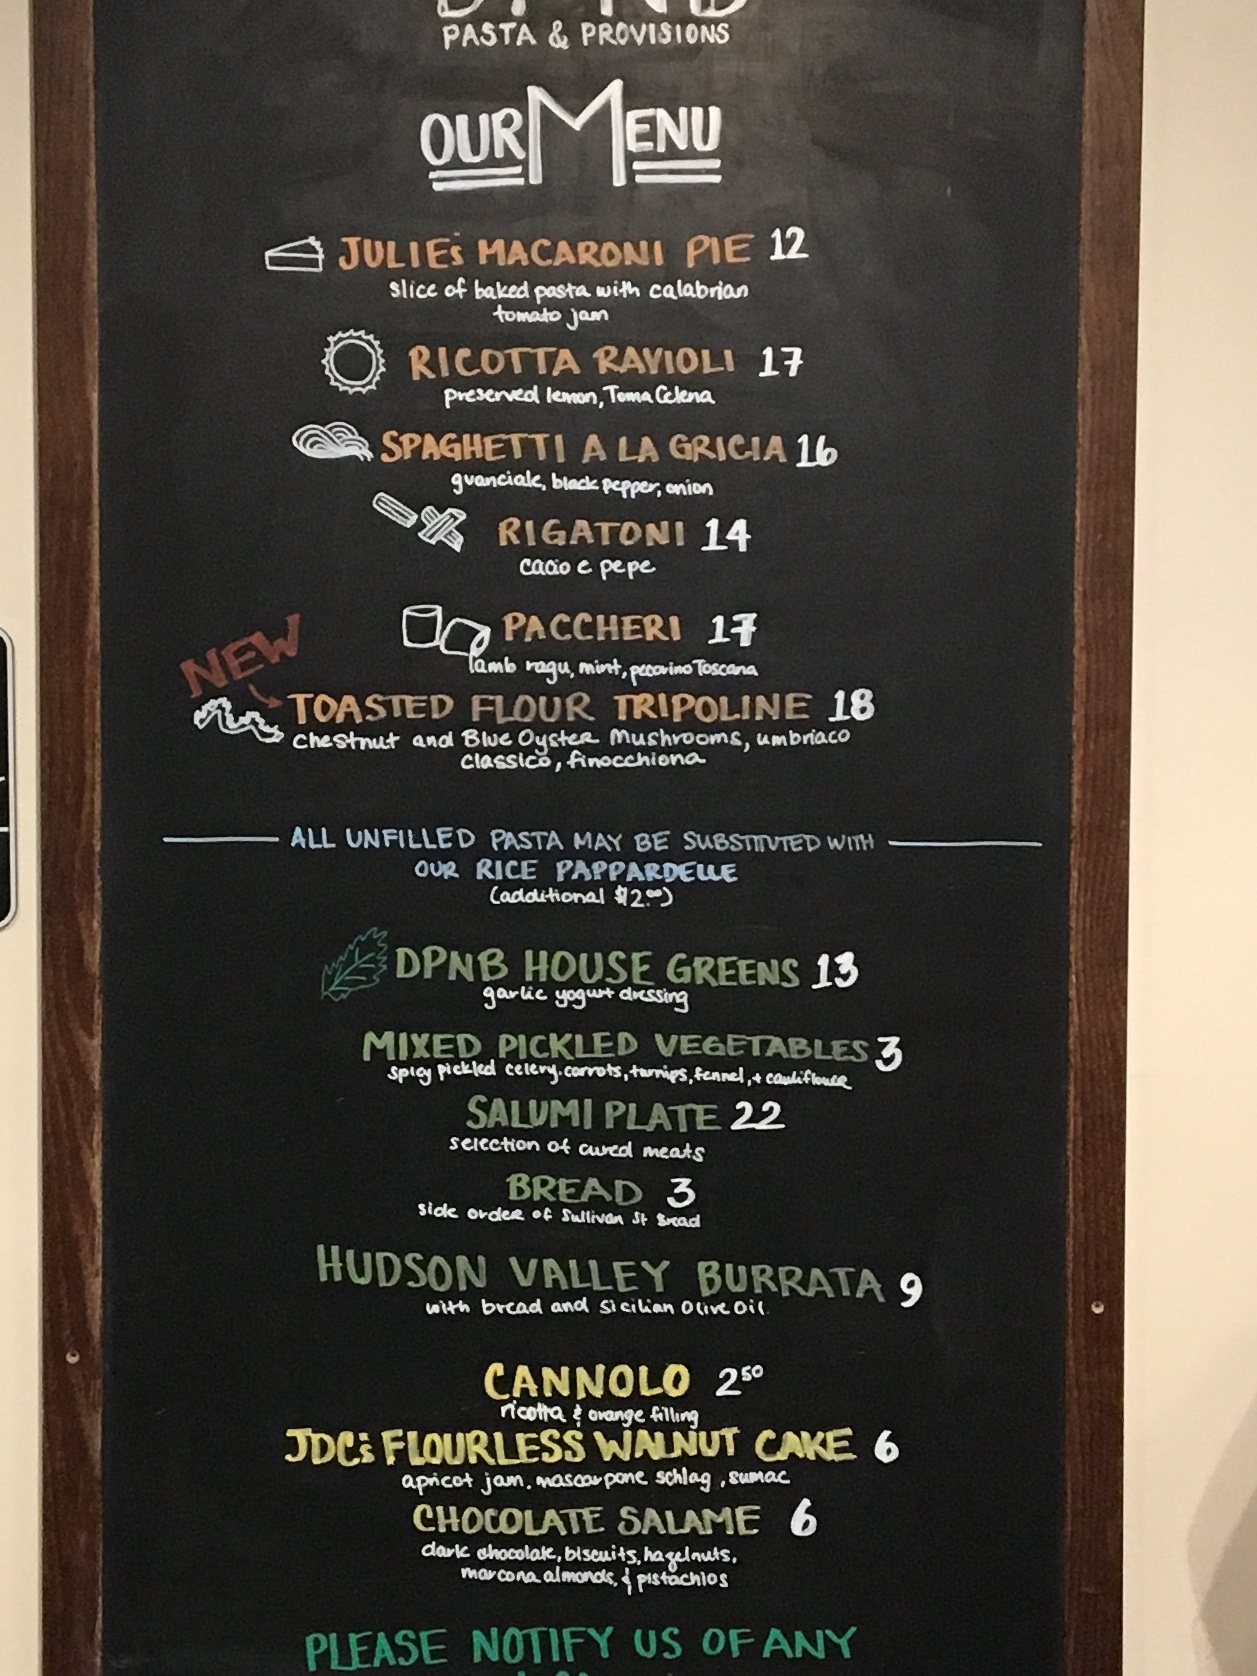 PASTA & PROVISIONS
OUR MENU
JULIE's MACARONI PIE 12
slice of baked pasta with calabrian
tomato jam
RICOTTA RAVIOLI 17
preserved lemon, Toma Celena
SPAGHETTI A LA GRICIA 16
guanciale, black pepper, onion
RIGATONI 14
cacio e pepe
PACCHERI 17
lamb ragu, mint, pecorino Toscana
NEW
TOASTED FLOUR TRIPOLINE 18
chestnut and Blue Oyster Mushrooms, umbriaco
classico, finocchiona
ALL UNFILLED PASTA MAY BE SUBSTITUTED WITH
OUR RICE PAPPARDELLE
(additional $2.00)
DPNB HOUSE GREENS 13
garlic yogurt dressing
MIXED PICKLED VEGETABLES 3
spicy pickled celery, carrots, turnips, fennel, + cauliflower
SALUMI PLATE 22
selection of cured meats
BREAD 3
side order of Sullivan St Bread
HUDSON VALLEY BURRATA 9
with bread and Sicilian Olive Oil
CANNOLO 2 50
ricotta & orange filling
JDC's FLOURLESS WALNUT CAKE 6
apricot jam, mascarpone schlag, sumac
CHOCOLATE SALAME 6
dark chocolate, biscuits, hazelnuts,
marcona almonds, & pistachios
PLEASE NOTIFY US OF ANY